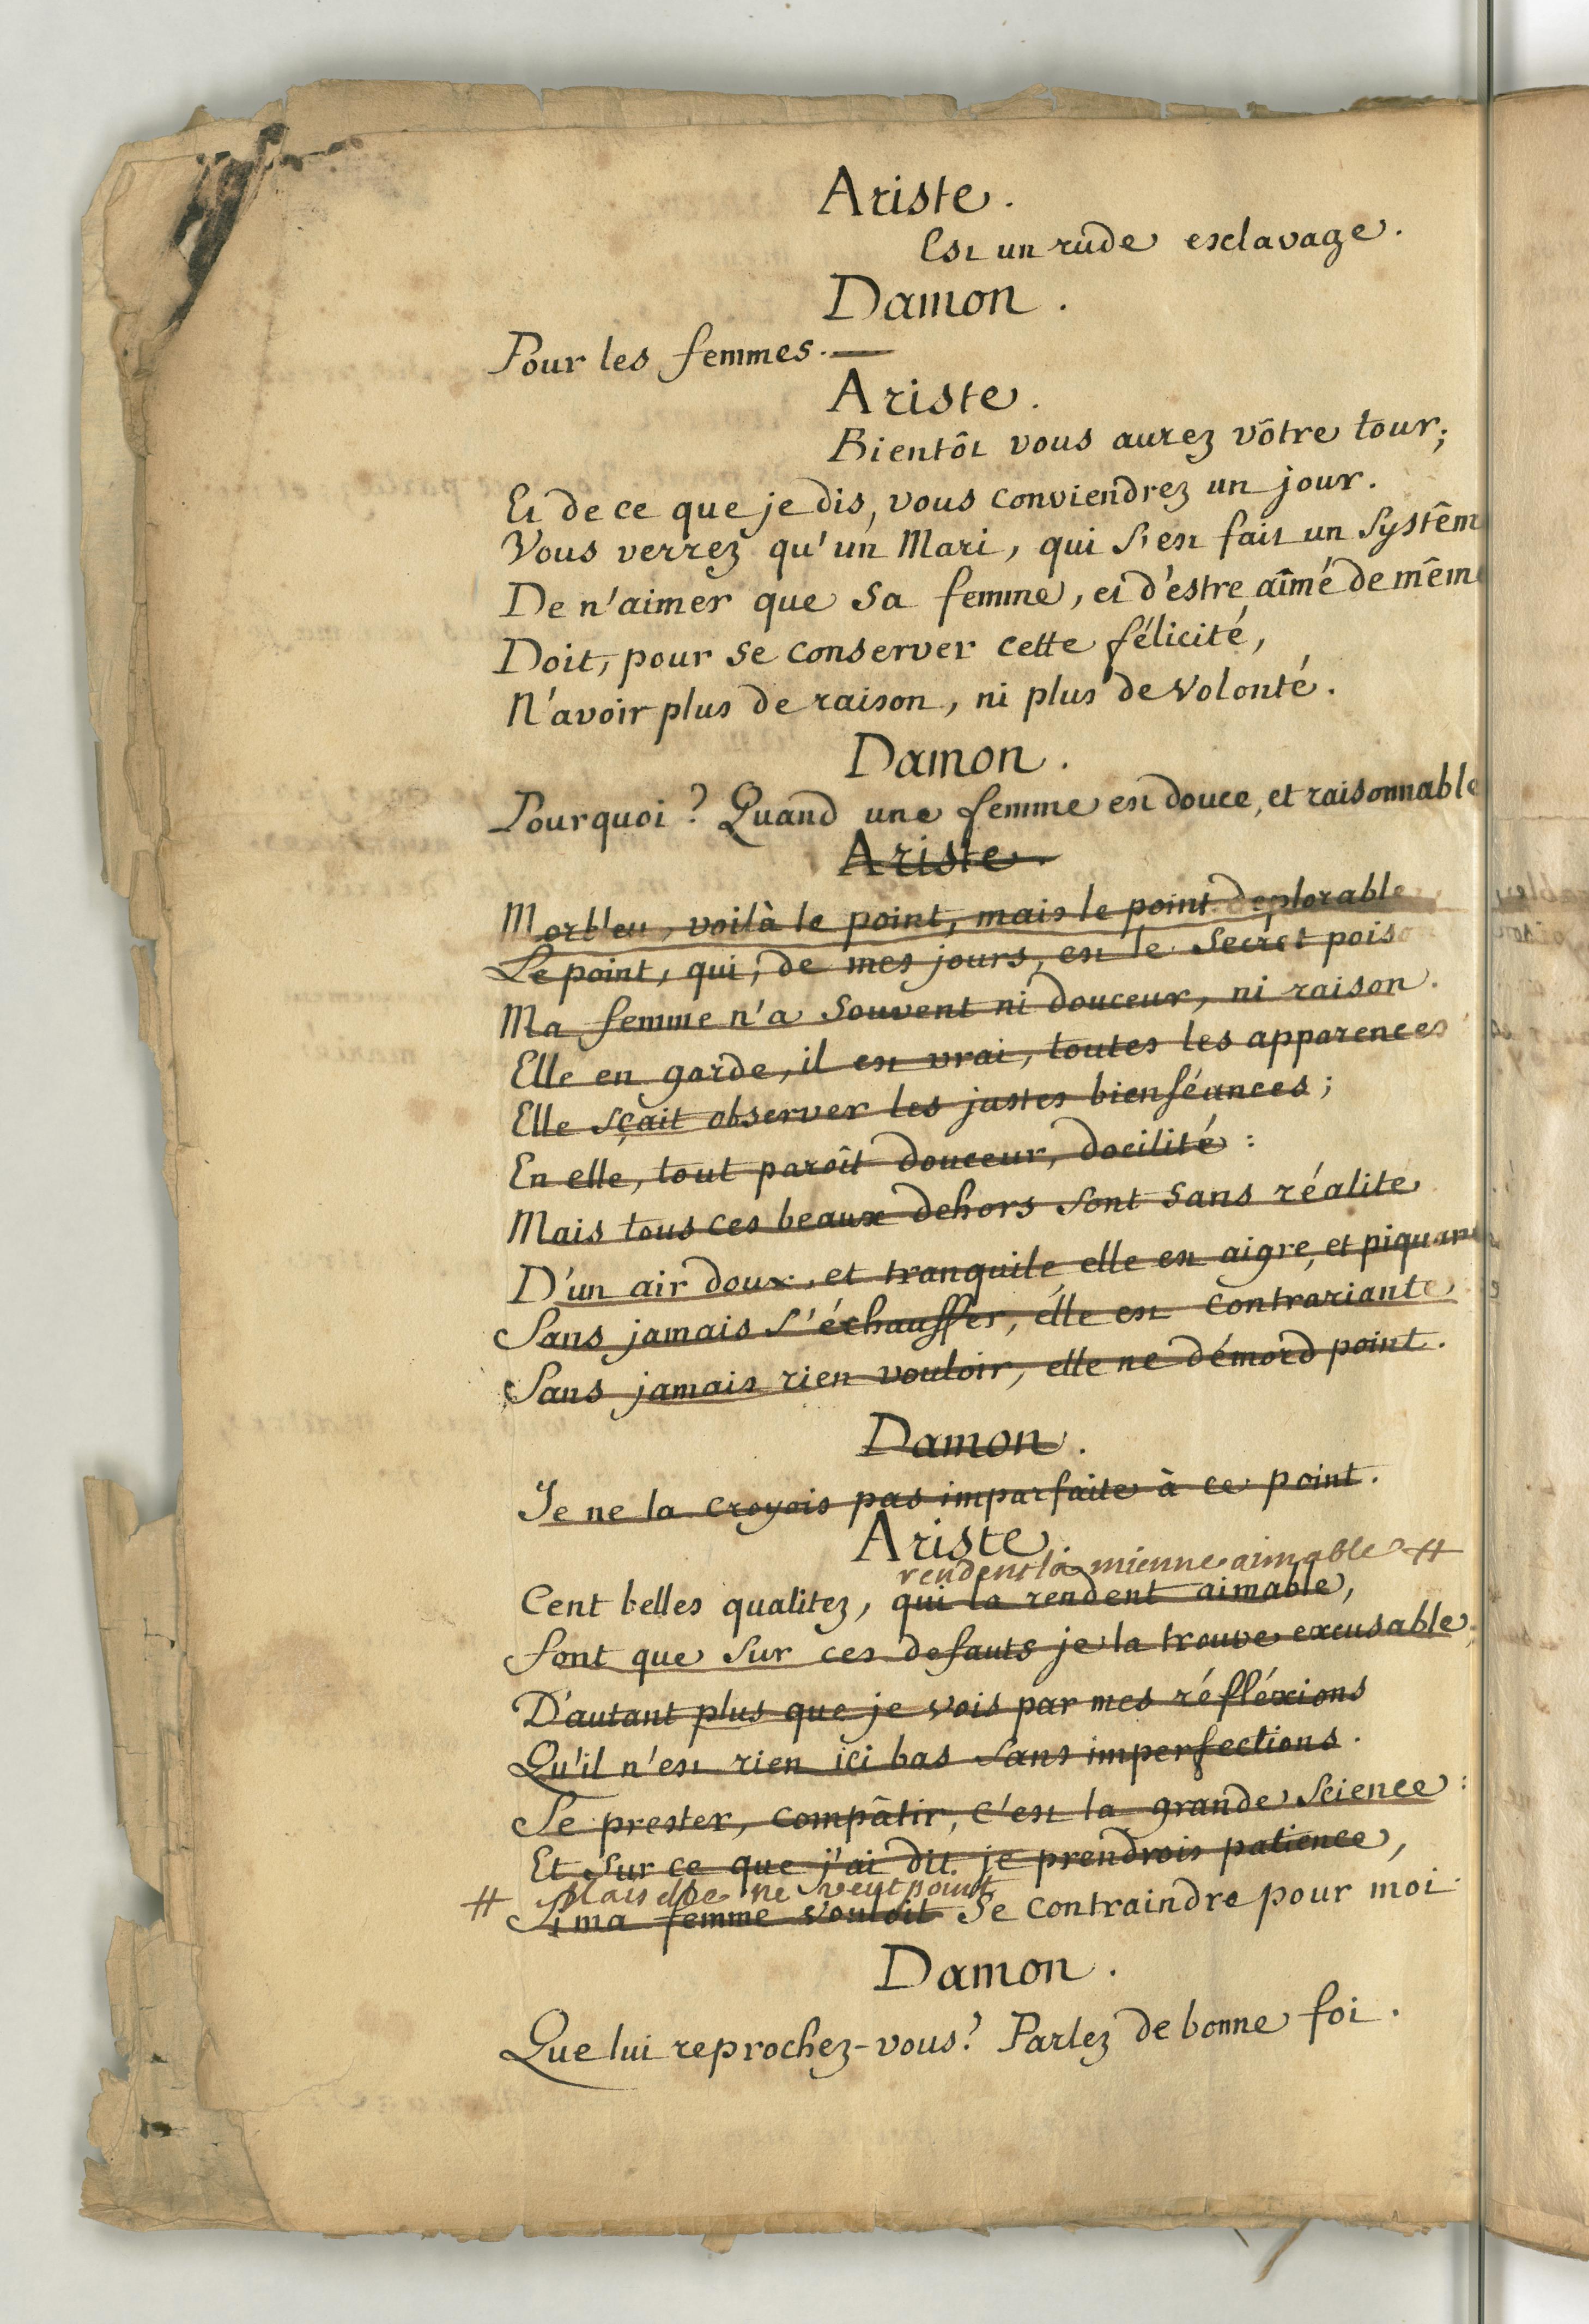 Ariste.
Est un rude esclavage.
Damon.
Pour les femmes. —
Ariste.
Bientôt vous aurez vôtre tour;
Et de ce que je dis, vous conviendrez un jour.
Vous verrez qu'un Mari, qui s'est fait un systêm
De n'aimer que sa femme, et d'estre aîmé de mêm
Doit, pour se conserver cette félicité,
N'avoir plus de raison, ni plus de volonté.
Damon.
Pourquoi? Quand une femme est douce, et raisonnable
Ariste.
Morbleu, voilà le point, mais le point deplorable
Le point, qui, de mes jours, est le secret poiso
Ma femme n'a souvent ni douceur, ni raison.
Elle en garde, il est vrai, toutes les apparences
Elle sçait observer les justes bienséances;
En elle, tout paroît douceur, docilité:
Mais tous ces beaux dehors sont sans réalite
D'un air doux, et tranquile, elle est aigre, et piquan
Sans jamais s'échauffer, elle est contrariante
Sans jamais rien vouloir, elle ne démord point.
Damon.
Je ne la croyois pas imparfaite à ce point.
Ariste
rendent la mienne aimable #
Cent belles qualitez, qui la rendent aimable,
font que sur ces defauts je la trouve excusable,
D'autant plus que je vois par mes réfléxions
Qu'il n'est rien ici bas sans imperfections.
Se prester, compâtir, c'est la grande science:
Et sur ce que j'ai dit je prendrois patience,
# Mais elle ne veut point
Si ma femme vouloit se contraindre pour moi.
Damon.
Que lui reprochez-vous? Parlez de bonne foi.